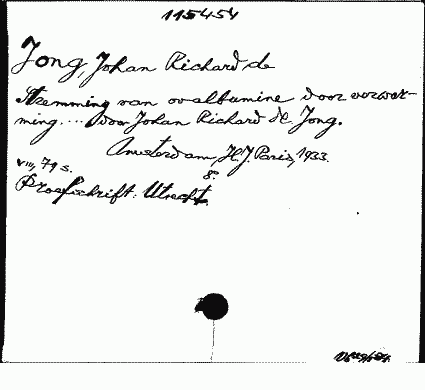 115454
Jong, Johan Richard de
Stremming van ovalbumine door verwar-
ming.... door Johan Richard de Jong.
Amsterdam, H.J. Paris, 1933.
8°.
VIII, 79 s.
Proefschrift: Utrecht.